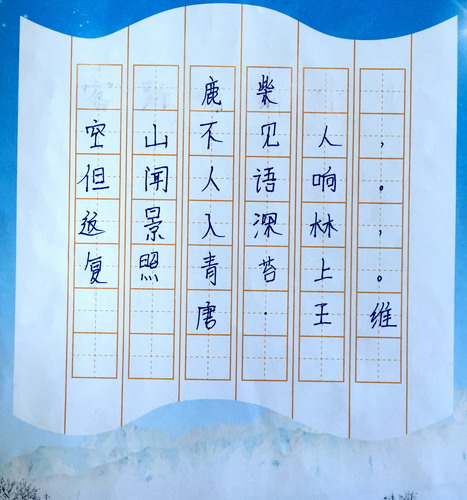 鹿柴
空山不见人，
但闻人语响。
返景入深林，
复照青苔上。
唐·王维